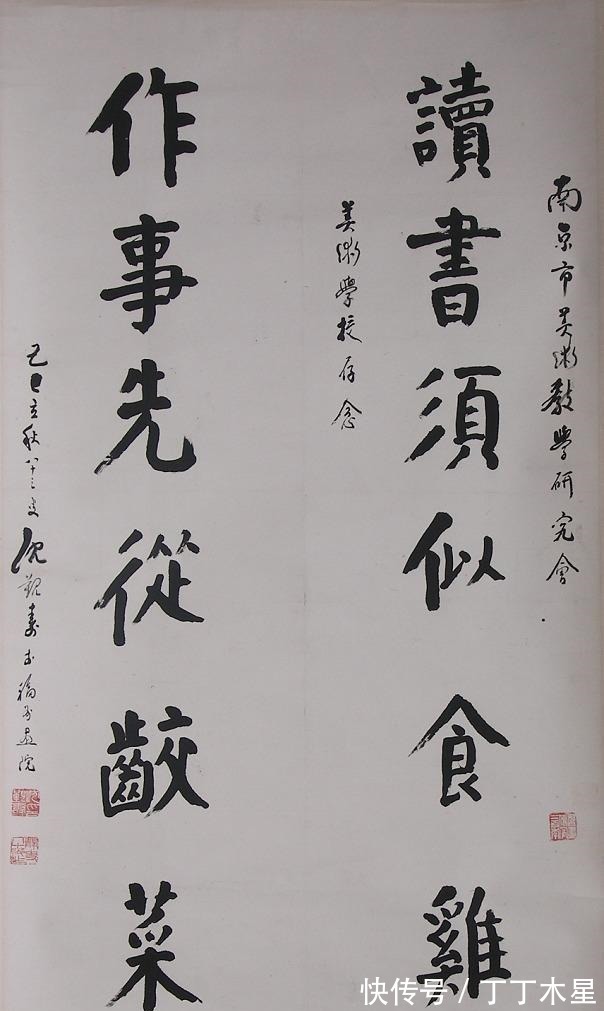 南京市美術教學研究會
讀書須似食雞
美術學校存念
作事先從齩菜
己巳立秋八十三叟沈觀壽書
快传号/丁丁木星